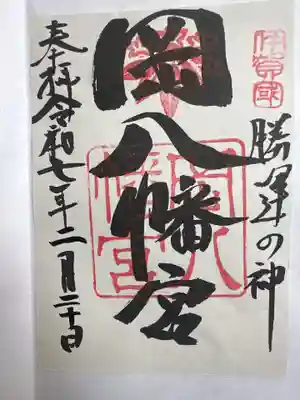 伊賀國
勝運の神
岡八幡宮
岡八幡宮
奉拝 令和七年二月二十日